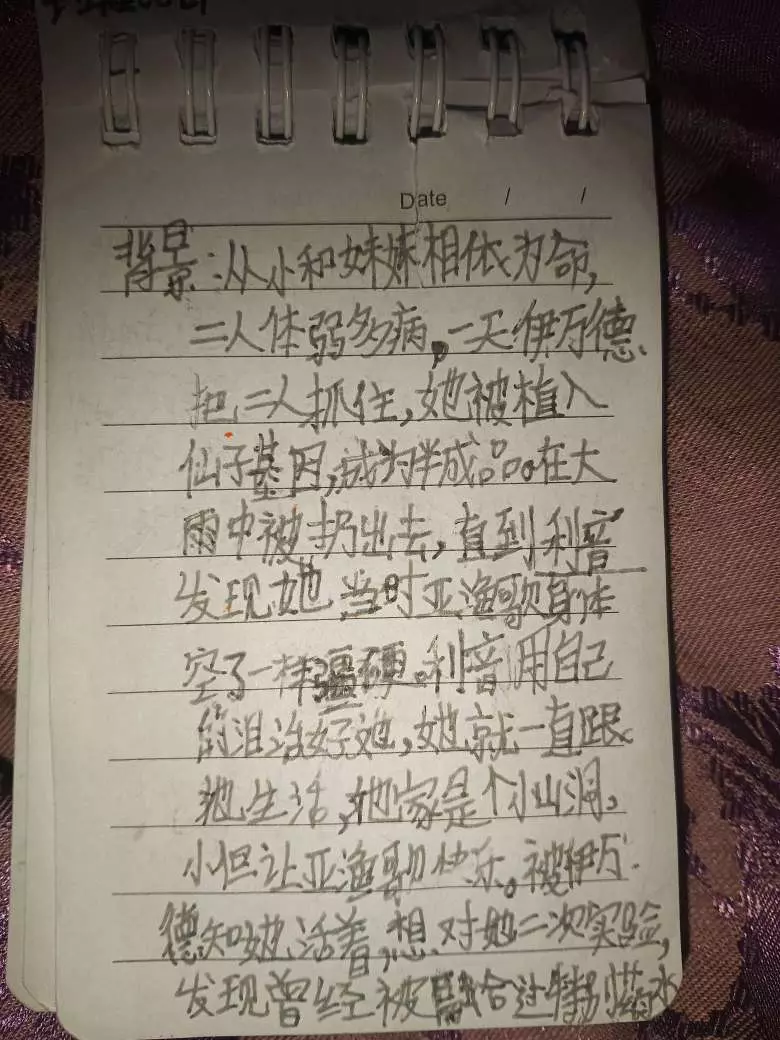 Date / /
背景:从小和妹妹相依为命,
二人体弱多病。一天伊万德
把二人抓住,她被植入
仙子基因,成为半成品。在大
雨中被扔出去,直到利音
发现她,当时亚渔歌身体
空了一样疆硬。利音用自己
的泪治好她,她就一直跟
她生活,她家是个小山洞。
小但让亚渔歌快乐。被伊万
德知她活着,想对她二次实验,
发现曾经被融合过特别药水